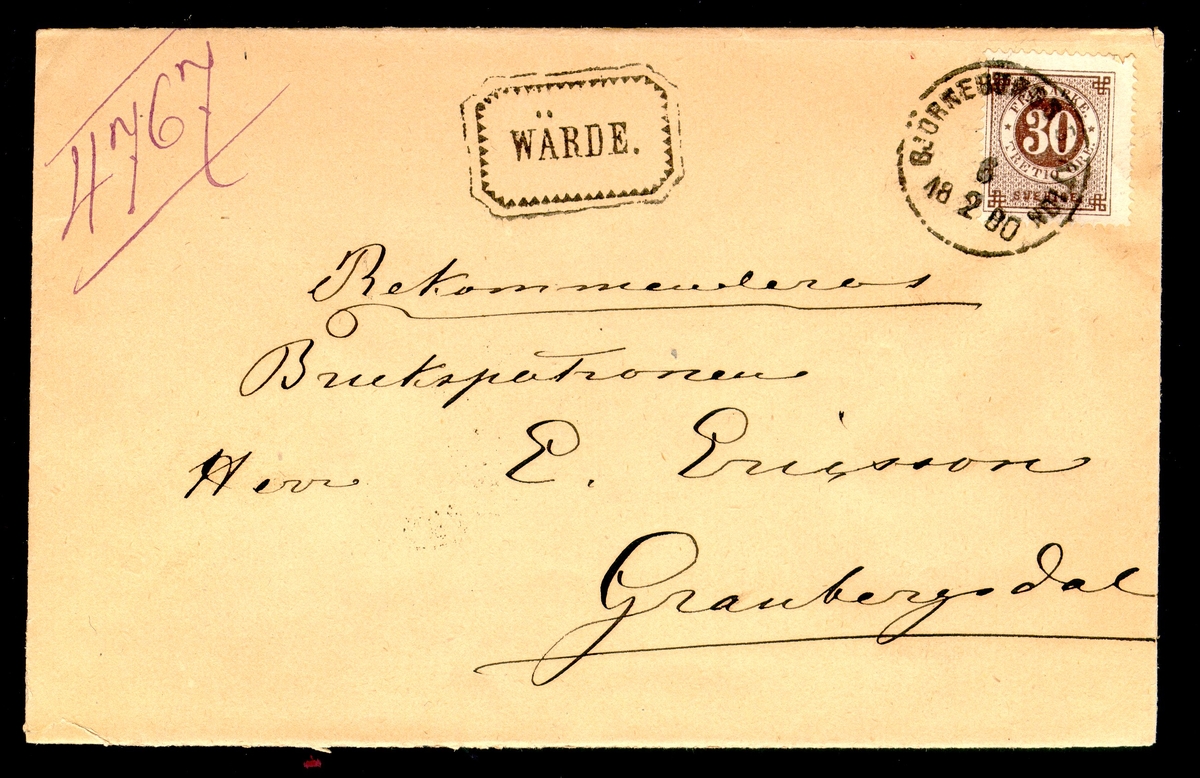 4767
WÄRDE.
FRIMÄRKE
30
TRETIO ÖRE.
SVERIGE
6
18 2 80
Rekommenderas
Brukspatronen
Herr E. Ericsson
Granbergsdal